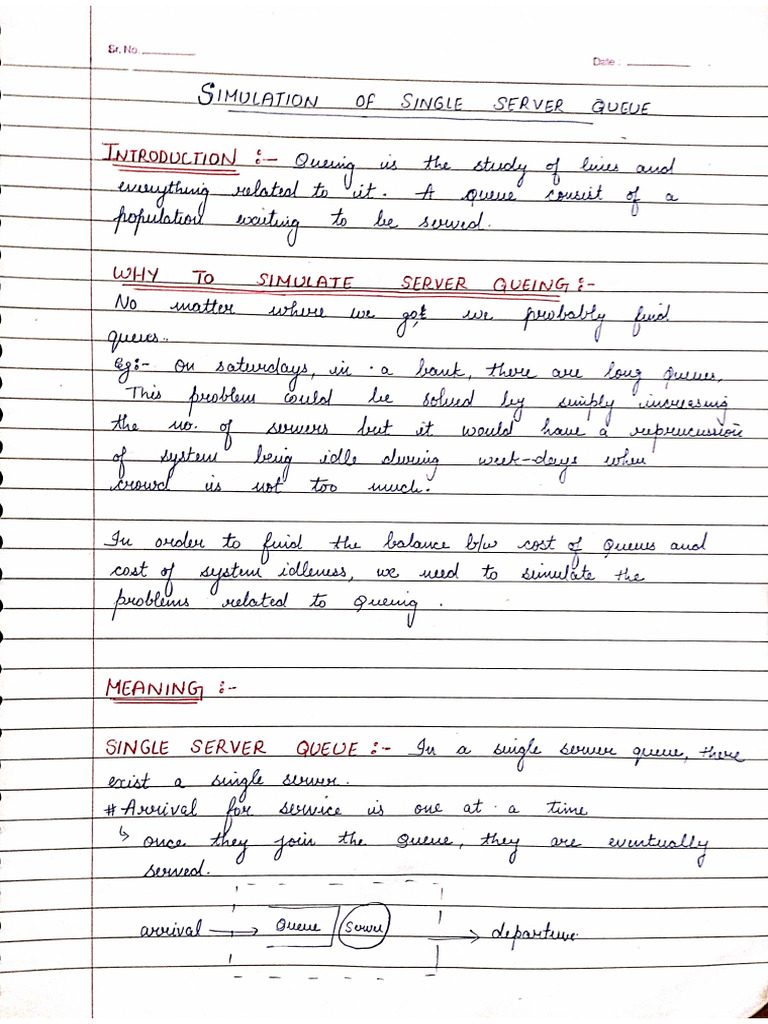 Sr. No.
Date :
SIMULATION OF SINGLE SERVER QUEUE
INTRODUCTION :- Queing is the study of lines and
everything related to it. A queue consist of a
population waiting to be served.
WHY TO SIMULATE SERVER QUEING :-
No matter where we got we probably find
queues..
Eg:- On saturdays, in a bank, there are long queues.
This problem could be solved by simply increasing
the no. of servers but it would have a reprucussion
of system being idle during week-days when
crowd is not too much.
In order to find the balance b/w cost of Queues and
cost of system idleness, we need to simulate the
problems related to Queing .
MEANING :-
SINGLE SERVER QUEUE :- In a single server queue, there
exist a single server.
# Arrival for service is one at a time
↳ once they join the Queue, they are eventually
served.
arrival → Queue Server → departure